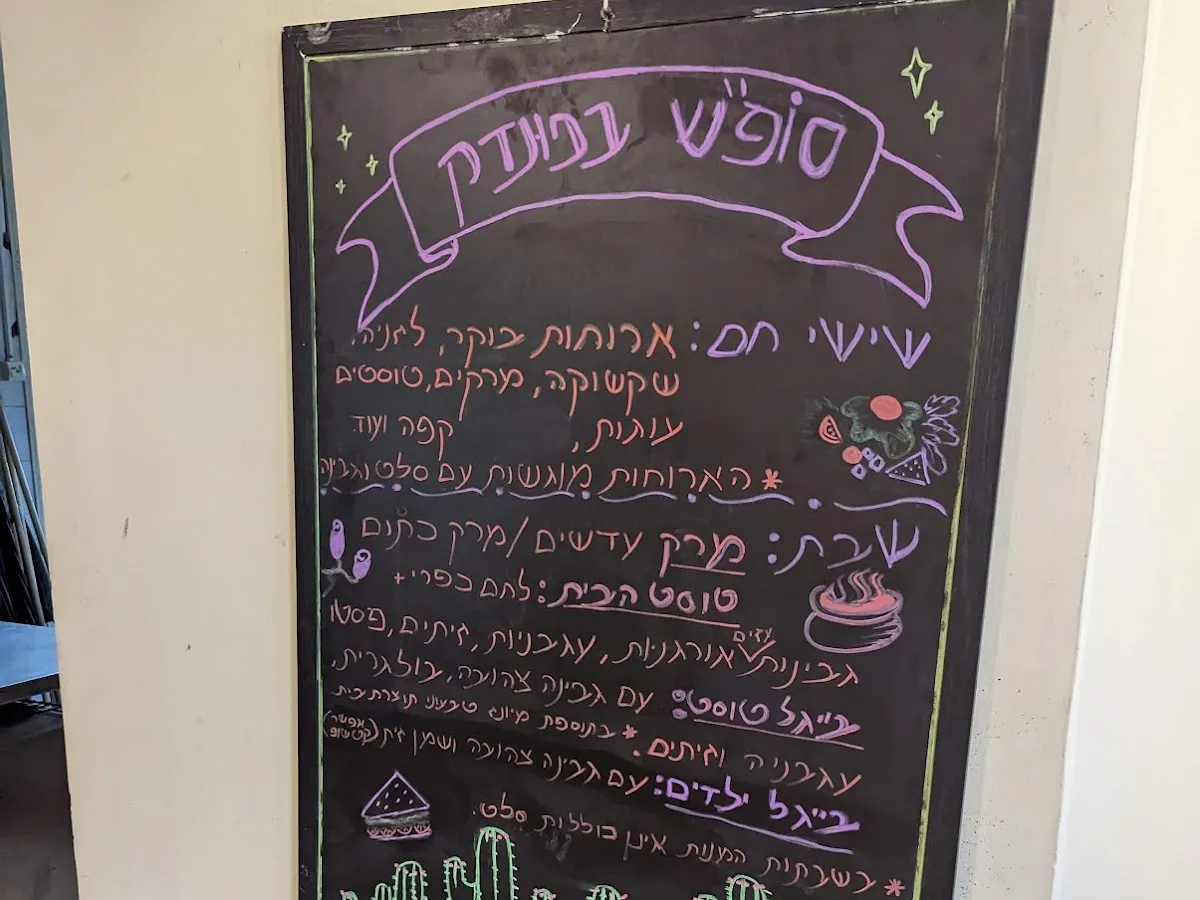 סופ״ש בפונדק
שישי חם: ארוחות בוקר, לזניה,
שקשוקה, מרקים, טוסטים
עוגות, קפה ועוד.
* הארוחות מוגשות עם סלט וגבינה
שבת: מרק עדשים / מרק כתום
טוסט הבית: לחם כפרי +
גבינות עזים אורגניות, עגבניות, זיתים, פסטו
בייגל טוסט: עם גבינה צהובה, בולגרית,
עגבניה וזיתים. * בתוספת מיונז טבעוני תוצרת בית
בייגל ילדים: עם גבינה צהובה ושמן זית (אפשר קטשופ)
* בשבתות המנות אינן כוללות סלט.